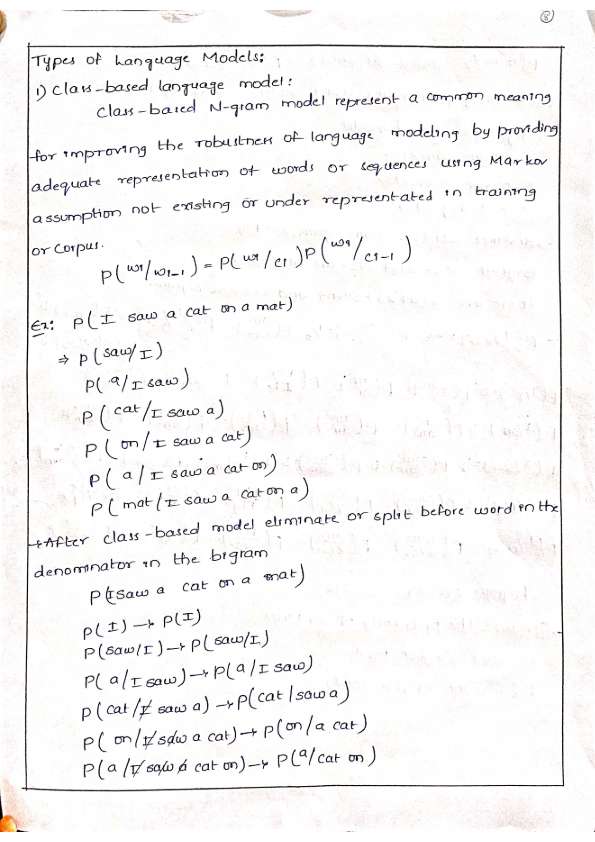 8
Types of Language Models:
1) Class-based language model:
Class-based N-gram model represent a common meaning
for improving the robustness of language modeling by providing
adequate representation of words or sequences using Markov
assumption not existing or under representated in training
or corpus.
P(wi/wi-1) = P(wi/ci) P(wi/ci-1)
Ex: P(I saw a cat on a mat)
⇒ P(saw/I)
P(a/I saw)
P(cat/I saw a)
P(on/I saw a cat)
P(a/I saw a cat on)
P(mat/I saw a cat on a)
→ After class-based model eliminate or split before word in the
denominator in the bigram
P(I saw a cat on a mat)
P(I) → P(I)
P(saw/I) → P(saw/I)
P(a/I saw) → P(a/I saw)
P(cat/I saw a) → P(cat/saw a)
P(on/I saw a cat) → P(on/a cat)
P(a/I saw a cat on) → P(a/cat on)